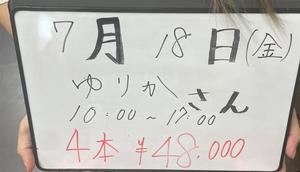 7月18日(金)
ゆりかさん
10:00～17:00
4本 ¥48.000